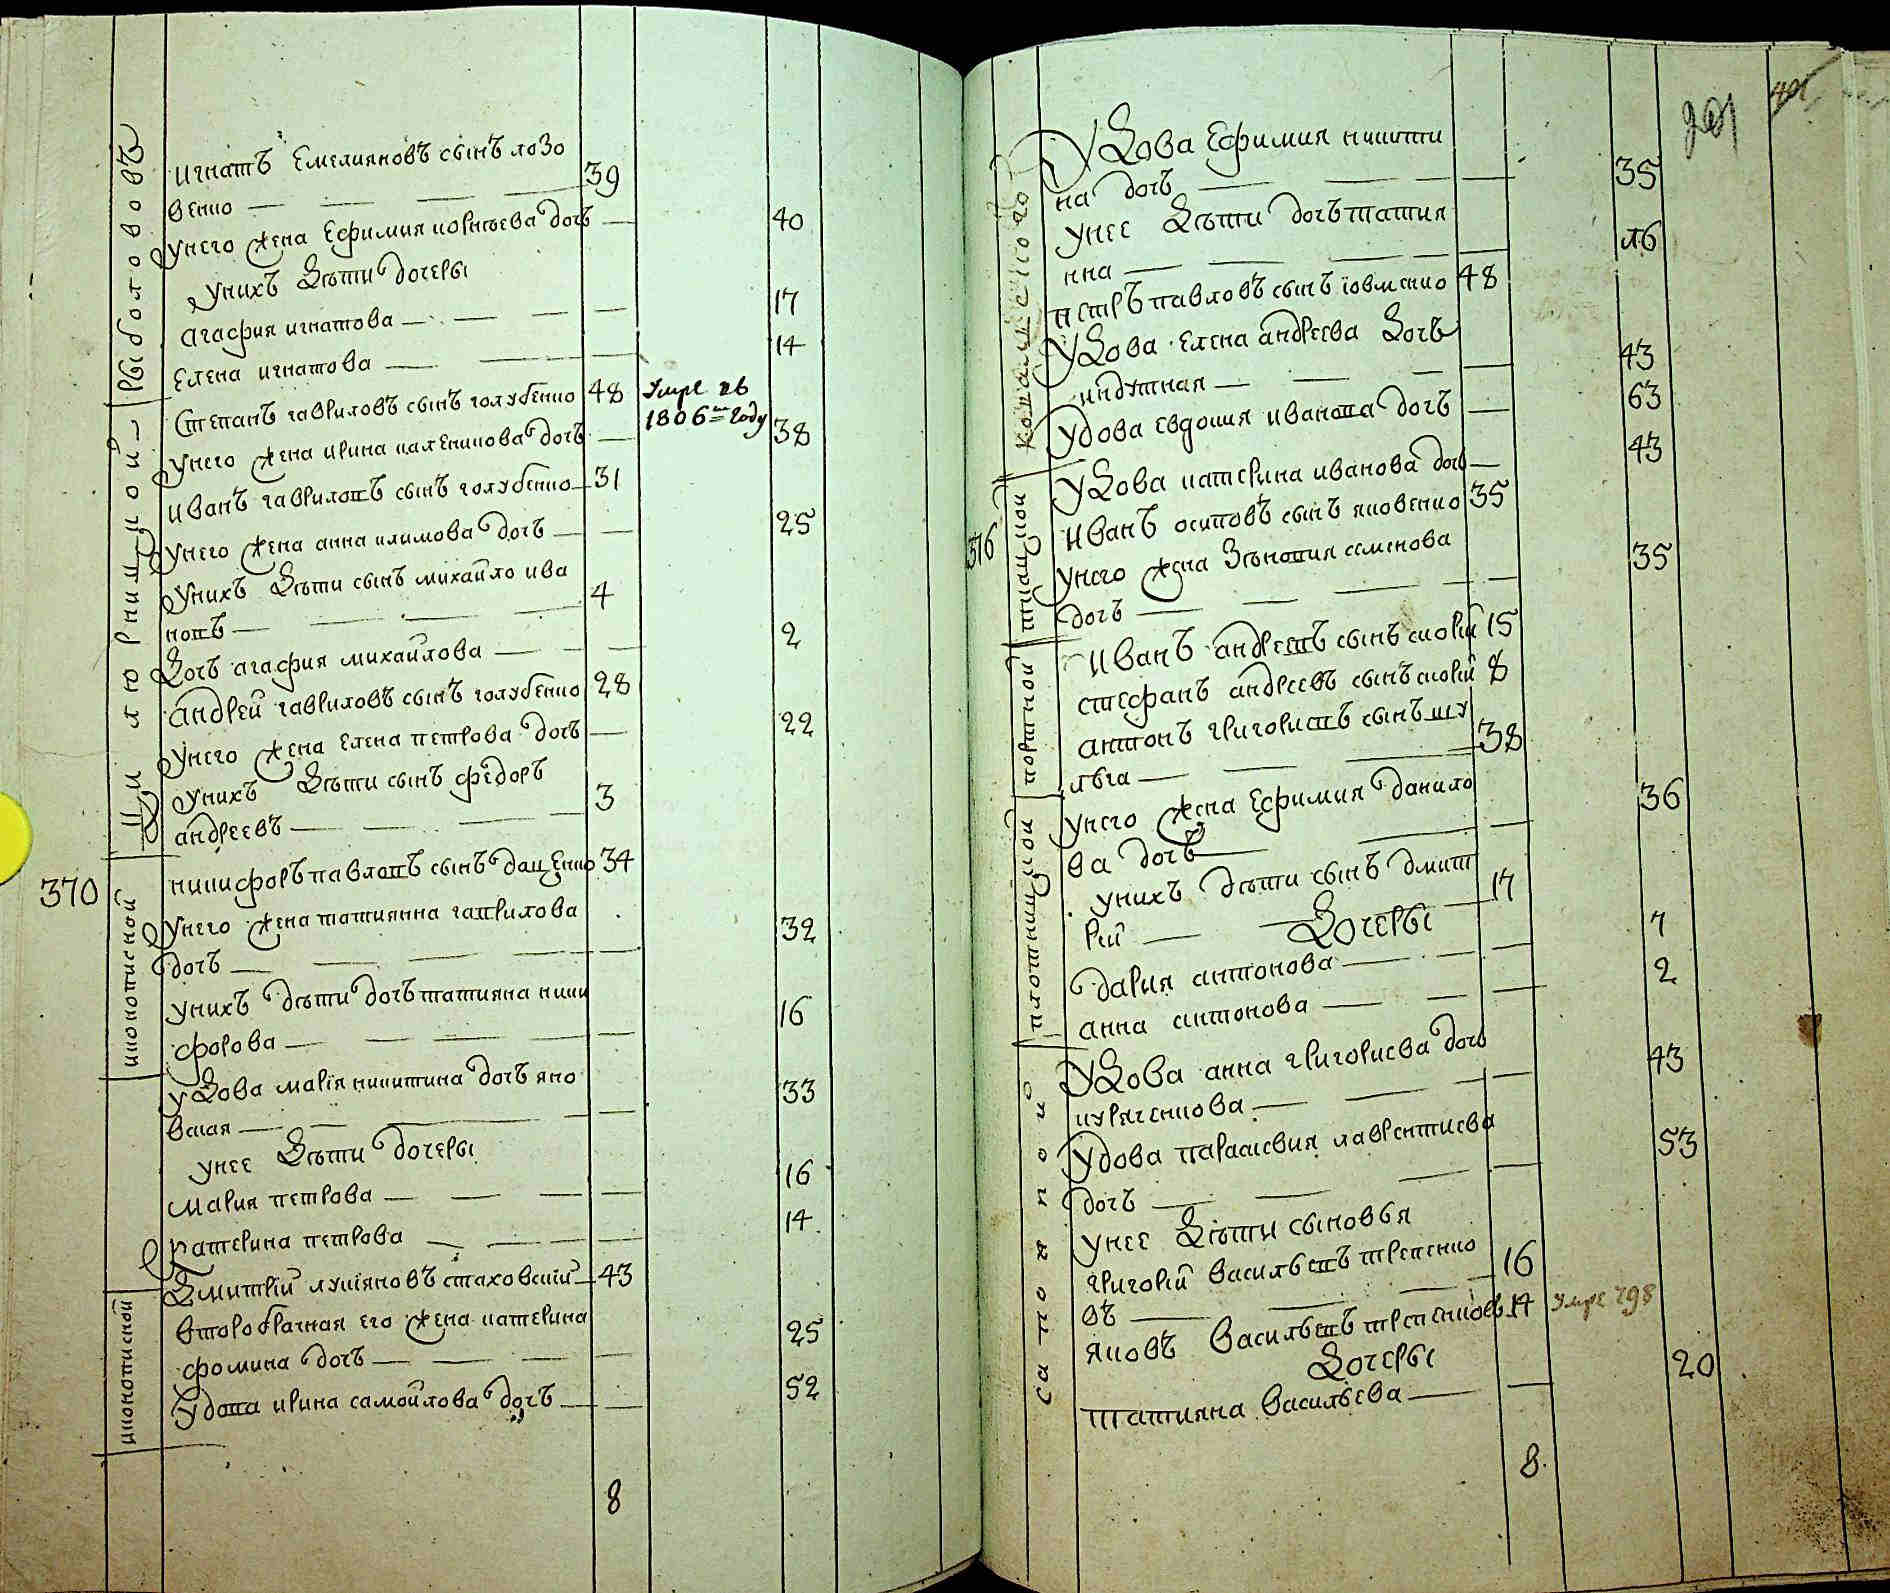 рыболововъ
Игнатъ Емелияновъ сынъ лозо
венко 39
унего жена Ефимия корнѣева дочь 40
унихъ дѣти дочеры
агафия игнатова 17
Елена игнатова 14
Степанъ гавриловъ сынъ голубенко 48
Умре въ
1806м году
унего жена ирина каленикова дочь 38
иванъ гавриловъ сынъ голубенко 31
унего жена анна климова дочь 25
унихъ дѣти сынъ михайло ива
новъ 4
дочь агафия михайлова 2
андрей гавриловъ сынъ голубенко 28
унего жена Елена петрова дочь 22
унихъ дѣти сынъ федоръ
андреевъ 3
370
иконописной
никифоръ павловъ сынъ даценко 34
унего жена татиянна гаврилова
дочь 32
унихъ дѣти дочь татияна ники
форова 16
удова марія никитина дочь яко
вкая 33
унее дѣти дочеры
мария петрова 16
катерина петрова 14
иконописной
дмитрій лукіяновъ стаховский 43
второбрачная его жена катерина
фомина дочь 25
удова ирина самойлова дочь 52
8
201
401
Удова Ефимия никити
на дочь 35
унее дѣти дочь татия
нна 16
петръ павловъ сынъ іовменко 48
Удова Елена андреева дочь
кидушная 43
удова евдокия иванова дочь 63
удова катерина иванова дочь 43
376
ткацкой
Иванъ осиповъ сынъ яковенко 35
унего жена зѣновия семенова
дочь 35
портной
Иванъ андреевъ сынъ скорий 15
стефанъ андреевъ сынъ скорій 8
плотницкой
антонъ григориевъ сынъ шу
льга 38
унего жена Ефимия данило
ва дочь 36
унихъ дѣти сынъ дмит
рий 17
дочеры
дария антонова 7
анна антонова 2
сапожной
Удова анна григориева дочь
куряченкова 43
Удова параскевия лаврентиева
дочь 53
унее дѣти сыновья
григорій васильевъ трепенко
въ 16
яковъ васильевъ трепенковъ 14 умре 798
дочеры
татияна васильева 20
8